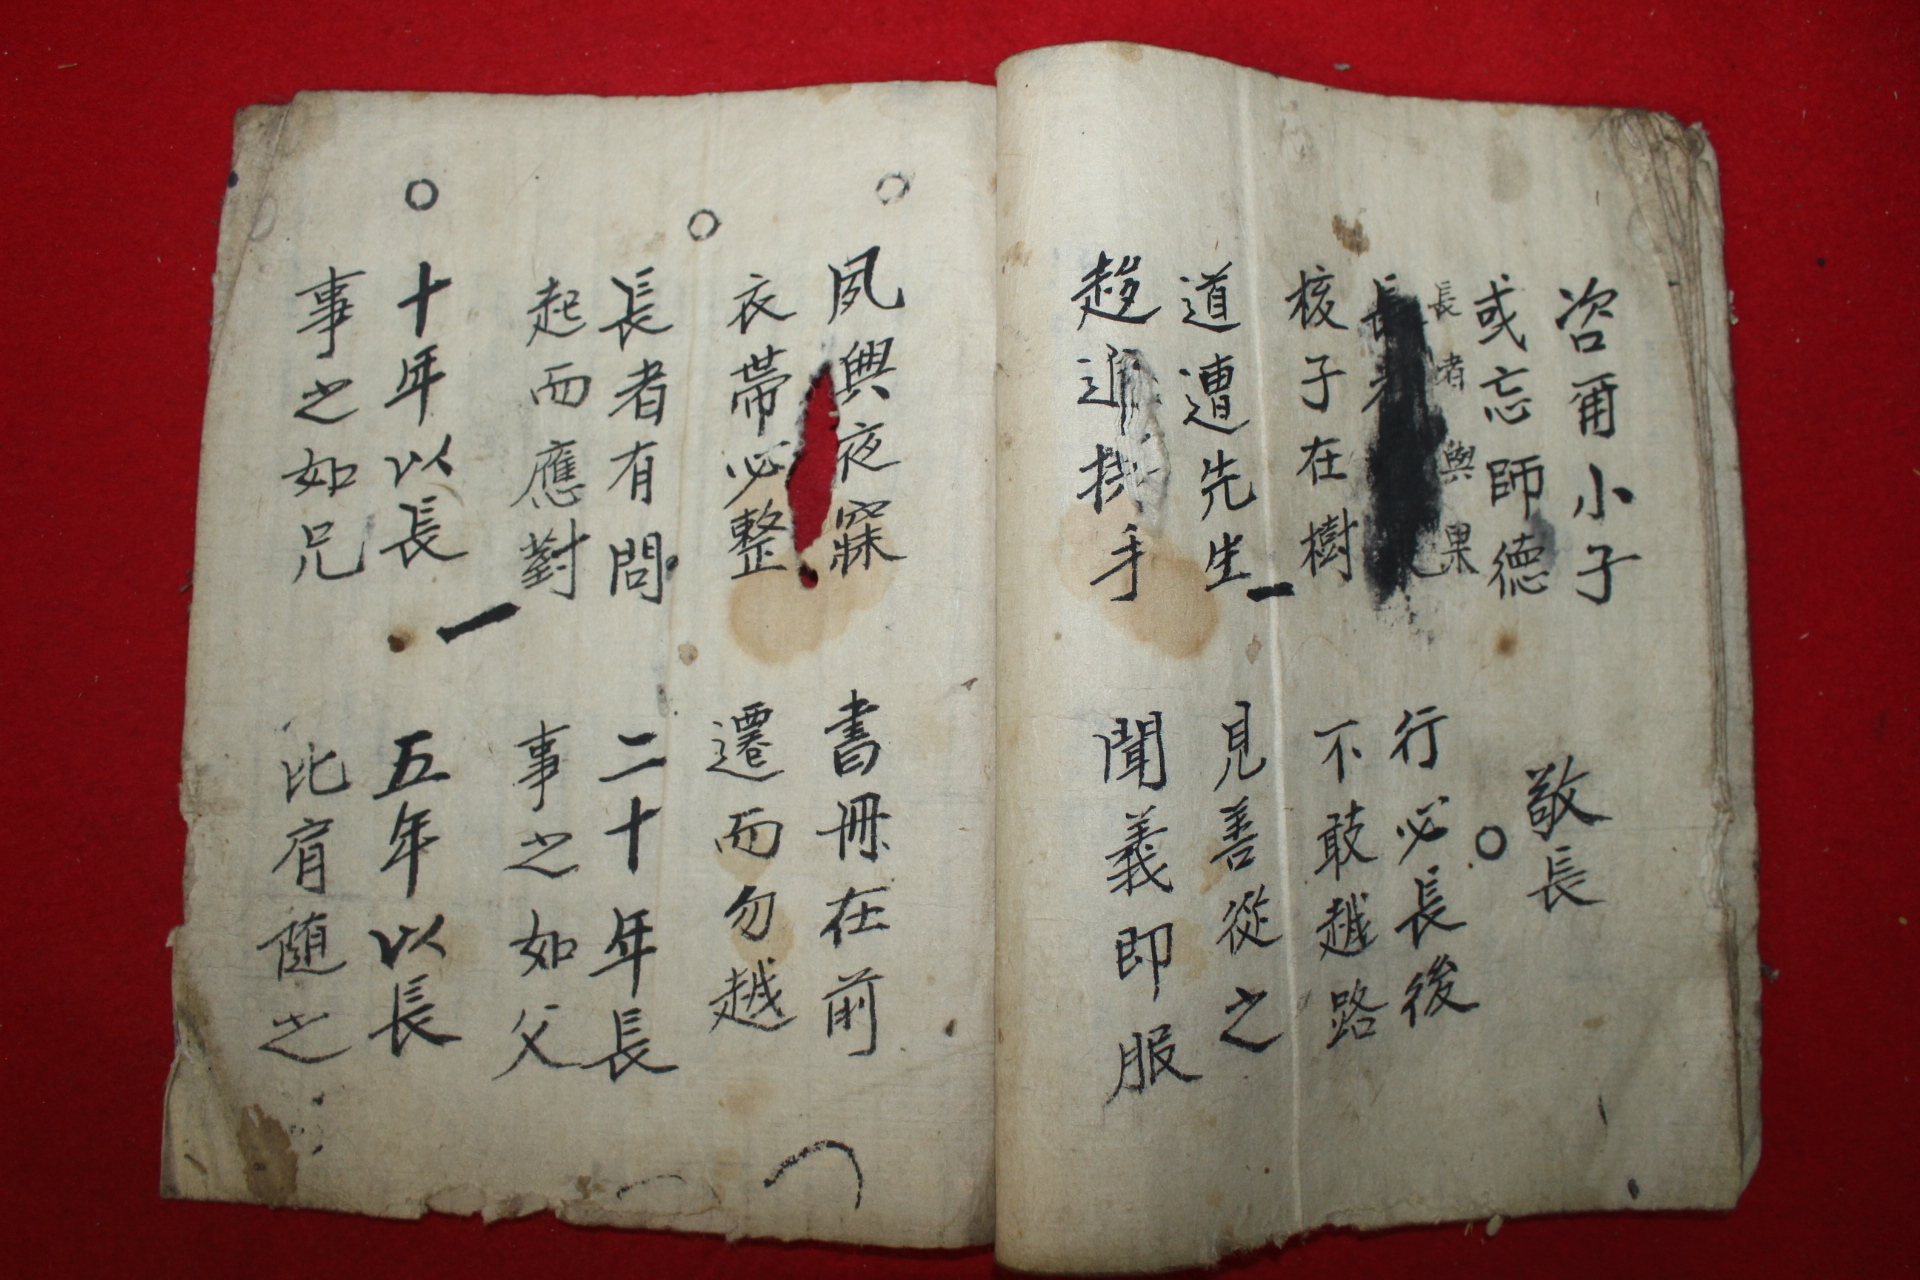 咨爾小子
或忘師德
敬長
長者與果
核子在樹
行必長後
不敢越路
道遭先生
趍進拱手
見善從之
聞義即服
夙興夜寐
衣帶必整
書冊在前
遷而勿越
長者有問
起而應對
二十年長
事之如父
十年以長
事之如兄
五年以長
比肩随之